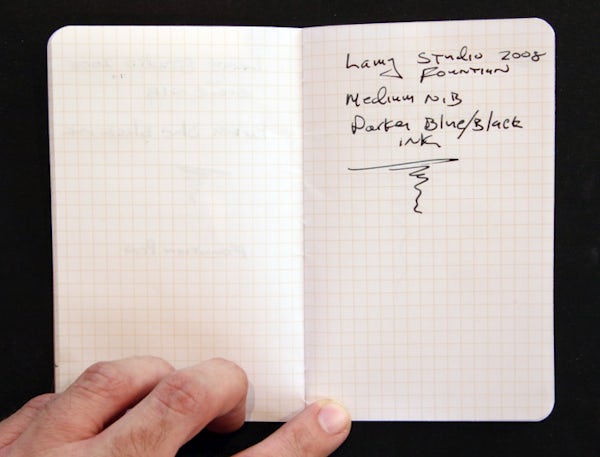 Lamy Studio 2008
Fountian
Medium NiB
Parker Blue/Black
ink